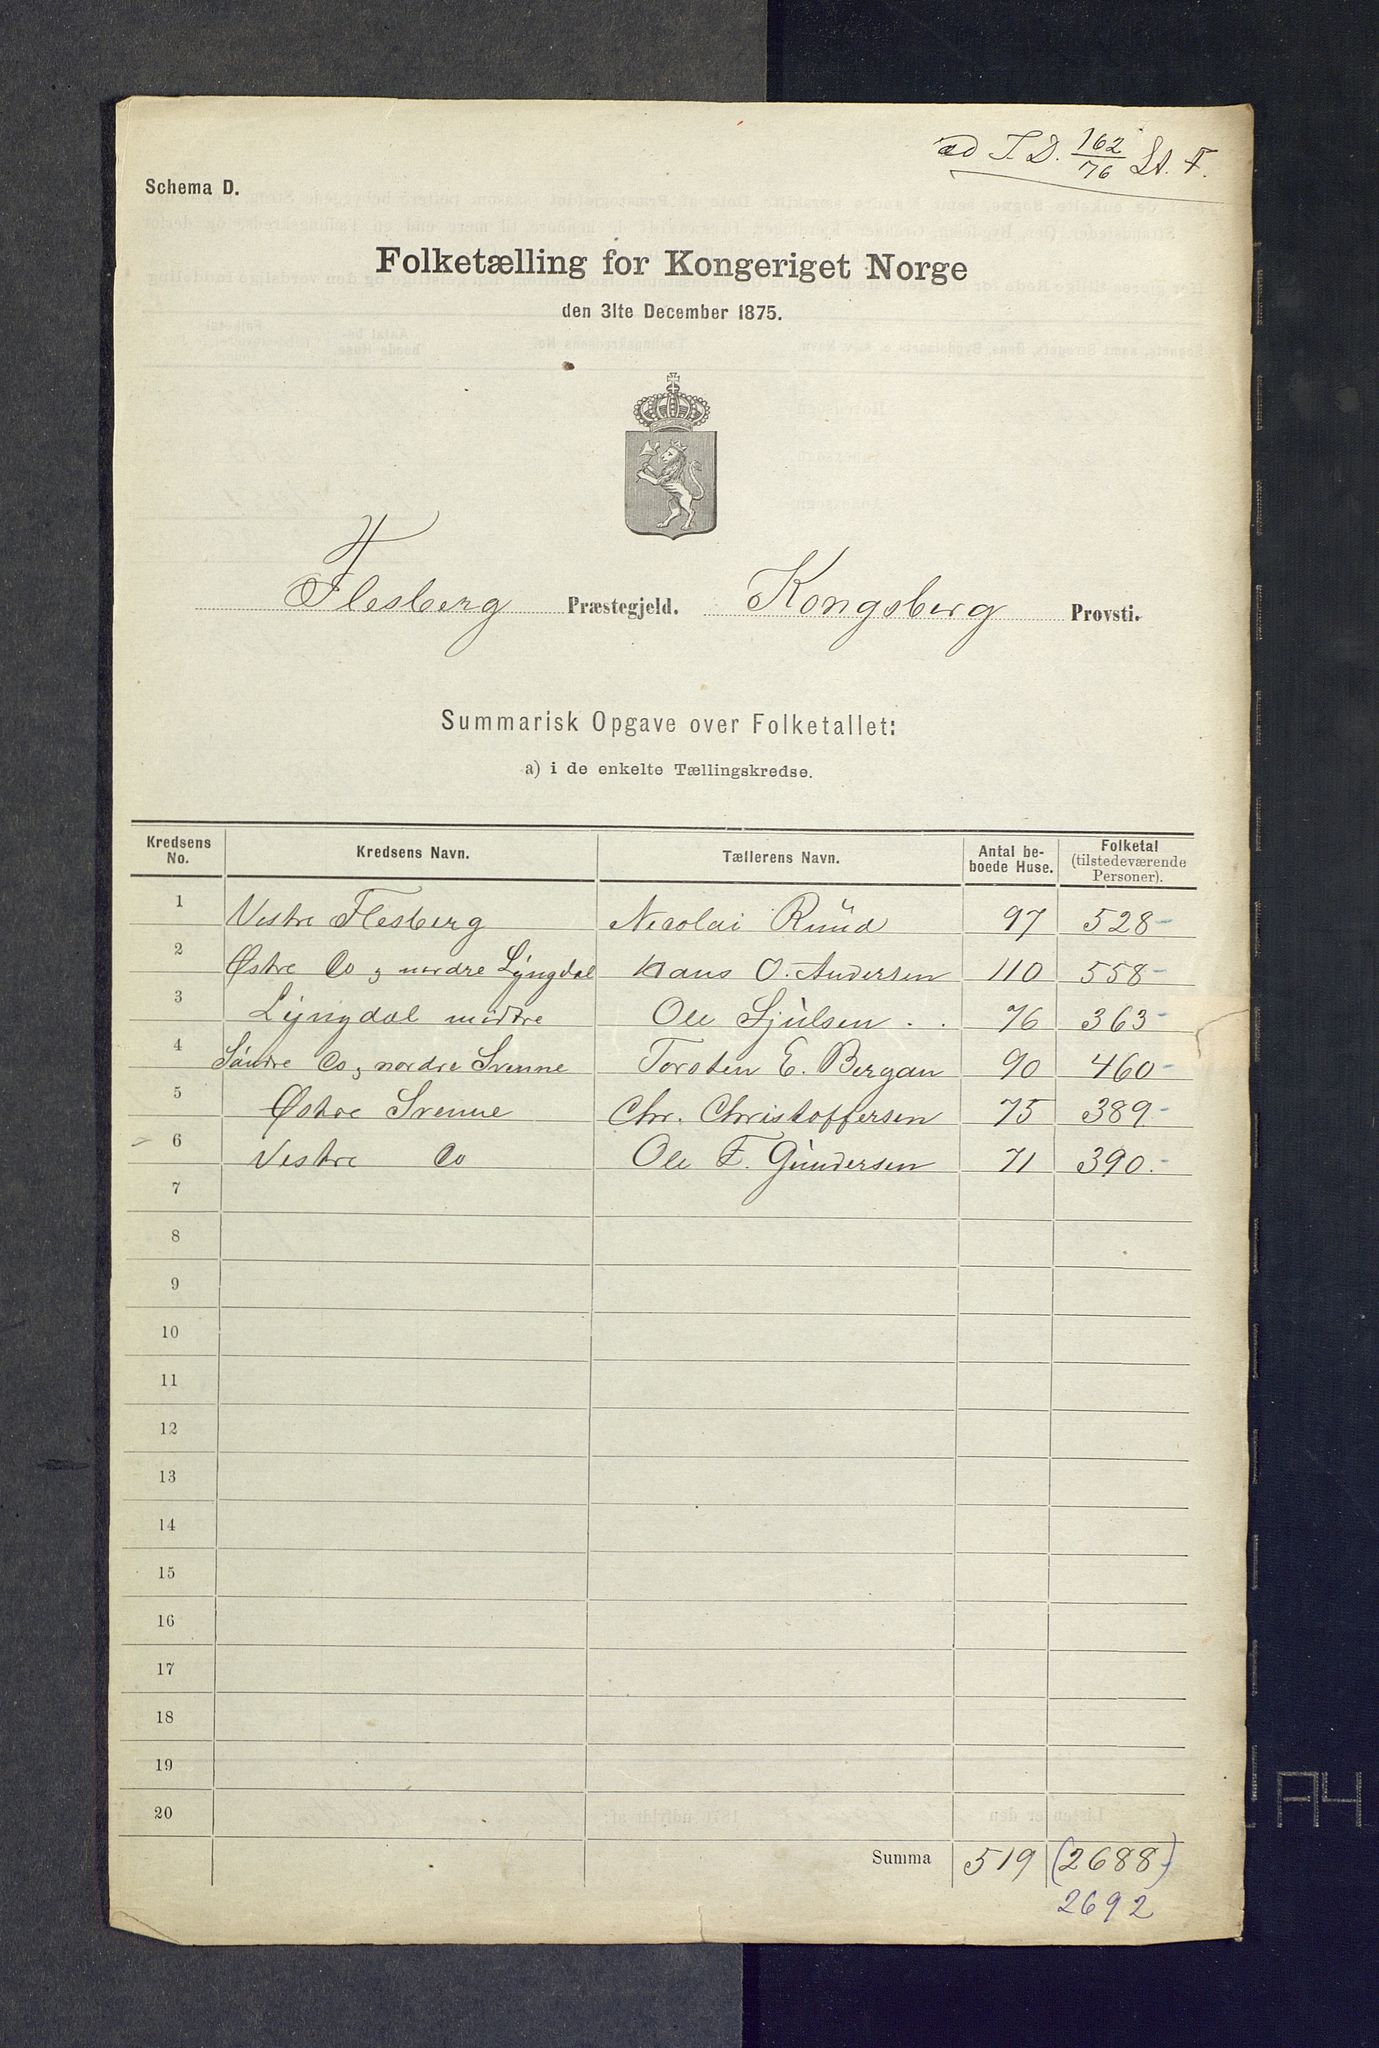 ad T. D. 162/76 Lt. F.
Schema D.
Folketælling for Kongeriget Norge
den 31te December 1875.
Flesberg Præstegjeld. Kongsberg Provsti.
Summarisk Opgave over Folketallet:
a) i de enkelte Tællingskredse.
Kredsens No. Kredsens Navn. Tællerens Navn. Antal be-boede Huse. Folketal (tilstedeværende Personer).
1 Vestre Flesberg Nicolai Ruud 97 528
2 Østre Do, nordre Lyngdal Hans O. Andersen 110 558
3 Lyngdal midtre Ole Sjulsen 76 363
4 Søndre Do, nordre Svenne Torsten E. Bergan 90 460
5 Østre Svenne Chr. Christoffersen 75 389
6 Vestre Do Ole F. Gundersen 71 390.
7
8
9
10
11
12
13
14
15
16
17
18
19
20
Summa 519 (2688)
2692
A4